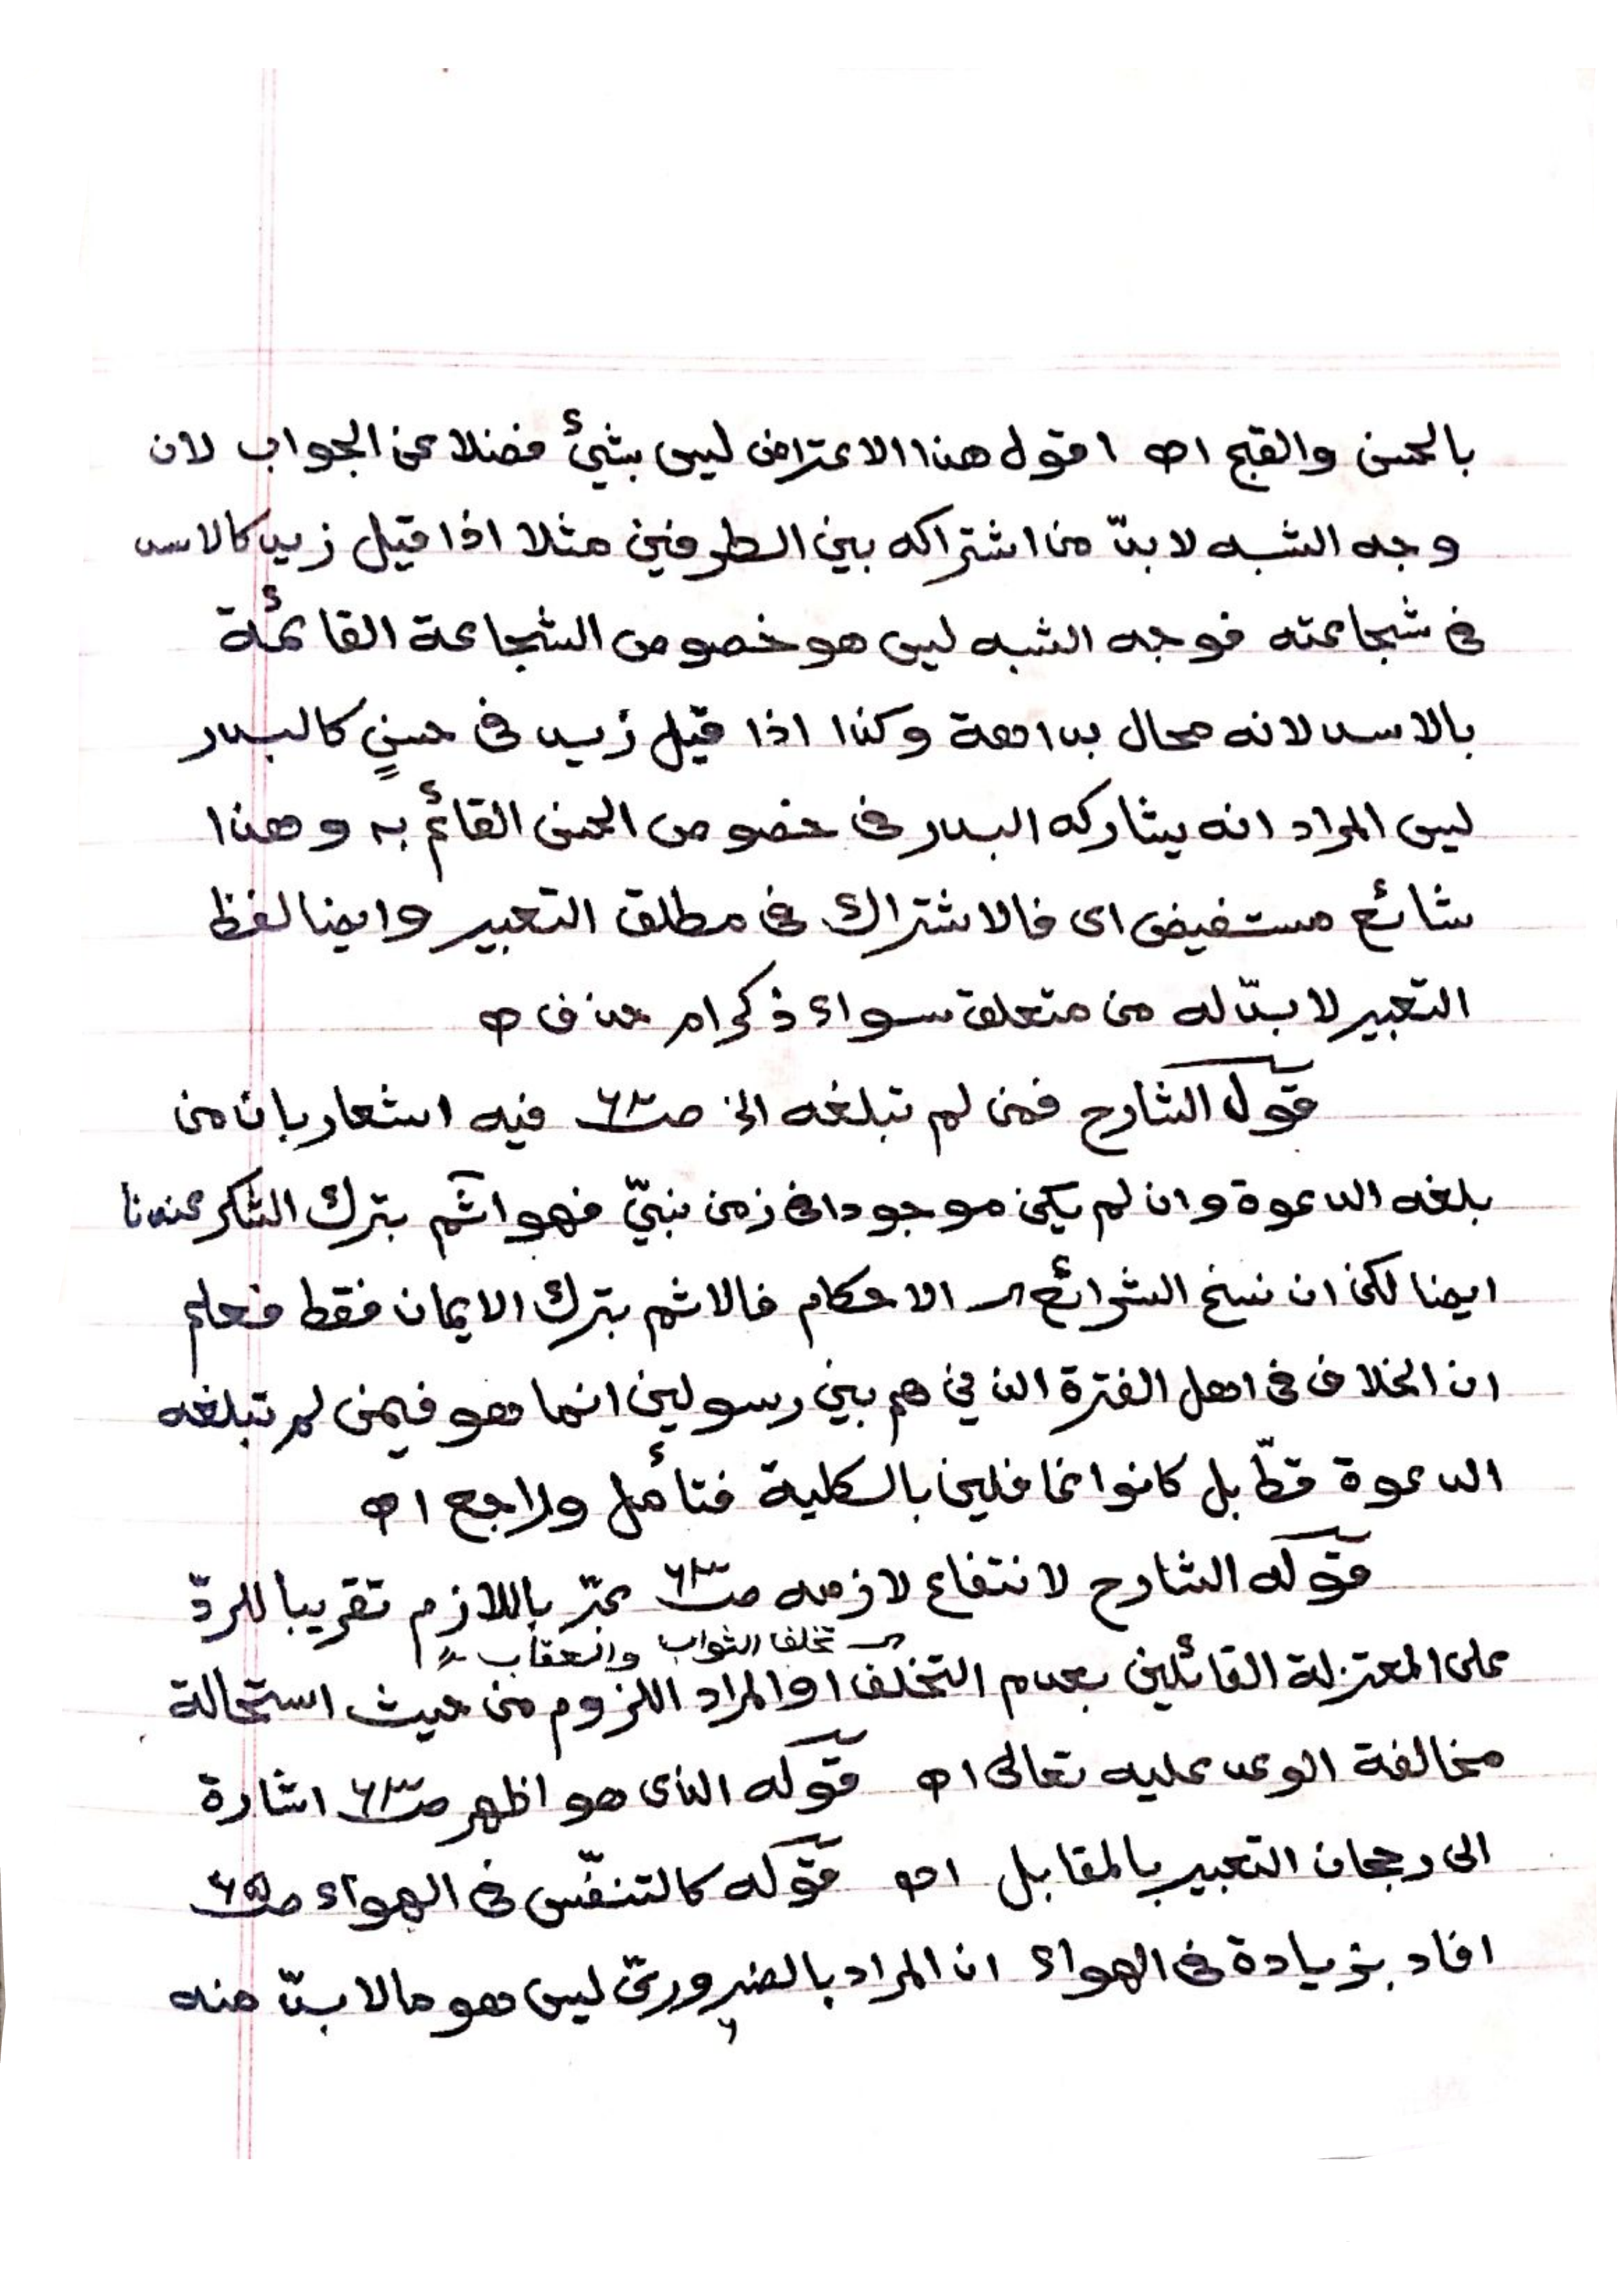 بالحسن والقبح اه اقول هذا الاعتراض ليس بشيئ فضلا عن الجواب لان
وجه الشبه لا بدّ من اشتراكه بين الطرفين مثلا اذا قيل زيد كالاسد
فى شجاعته فوجه الشبه ليس هو خصوص الشجاعة القائمة
بالاسد لانه محال بداهة وكذا اذا قيل زيد فى حسنٍ كالبدر
ليس المراد انه يشاركه البدر فى خصوص الحسن القائم به وهذا
شائع مستفيض اى فالاشتراك فى مطلق التعبير وايضا لفظ
التعبير لا بدّ له من متعلق سواء ذكر ام حذف اه
قوله الشارح فمن لم تبلغه الخ صـ٦٢ فيه اشعار بان من
بلغه الدعوة وان لم يكن موجودا فى زمن نبيّ فهو آثم بترك الشكر عندنا
ايضا لكن ان نسخ الشرائع ار الاحكام فالاثم بترك الايمان فقط فعلم
ان الخلاف فى اهل الفترة الذين هم بين رسولين انما هو فيمن لم تبلغه
الدعوة قطّ بل كانوا غافلين بالكلية فتأمل وراجع اه
قوله الشارح لانتفاع لازمه صـ٦٣ عبّر باللازم تقريبا للردّ
ار تخلف الثواب والعقاب
على المعتزلة القائلين بعدم التخلف او المراد اللزوم من حيث استحالة
مخالفة الوعد عليه تعالى اه قوله الذى هو اظهر صـ٦٣ اشارة
الى رجحان التعبير بالمقابل اه قوله كالتنفّس فى الهواء صـ٦٥
افاد بزيادة فى الهواء ان المراد بالضروريّ ليس هو ما لا بدّ منه
٦